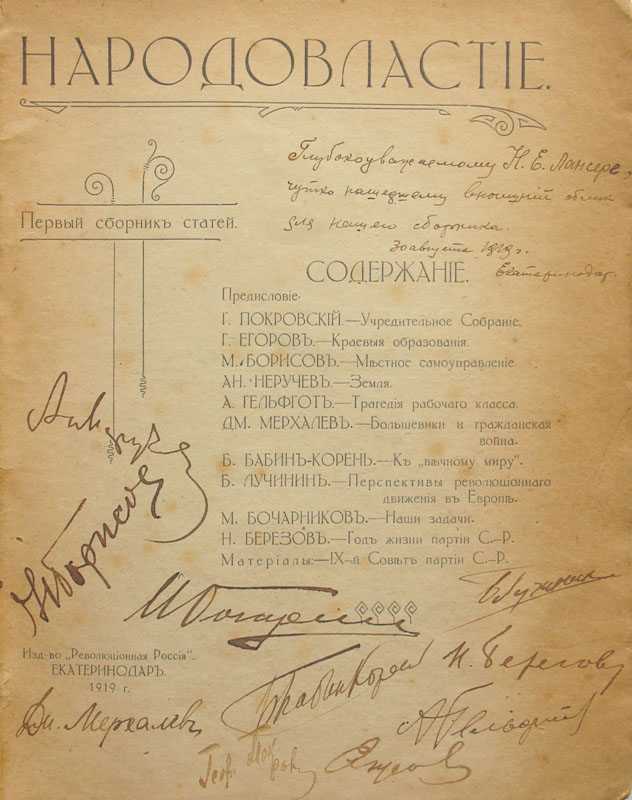 НАРОДОВЛАСТІЕ.
Глубокоуважаемому Н. Е. Лансере,
чутко нашедшему внешній облик
для нашего сборника.
30 августа 1919 г.
Екатеринодар.
Первый сборникъ статей.
СОДЕРЖАНІЕ.
Предисловіе.
Г. ПОКРОВСКІЙ.—Учредительное Собраніе.
Г. ЕГОРОВЪ.—Краевыя образованія.
М. БОРИСОВЪ.—Мѣстное самоуправленіе.
АН. НЕРУЧЕВЪ.—Земля.
А. ГЕЛЬФГОТЪ.—Трагедія рабочаго класса.
ДМ. МЕРХАЛЕВЪ.—Большевики и гражданская
война.
Б. БАБИНЪ-КОРЕНЬ.—Къ „вѣчному миру“.
Б. ЛУЧИНИНЪ.—Перспективы революціоннаго
движенія въ Европѣ.
М. БОЧАРНИКОВЪ.—Наши задачи.
Н. БЕРЕЗОВЪ.—Годъ жизни партіи С.-Р.
Матеріалы:—IX-й Совѣтъ партіи С.-Р.
МБорисов
Б Лучинин
Изд-во „Революціонная Россія“.
ЕКАТЕРИНОДАРЪ.
1919 г.
Н. Березов
Дм. Мерхалевъ
ББабинКорень
АГельфгот
Геор. Покровскій